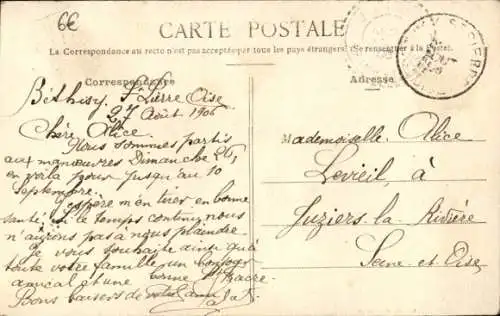 6€
CARTE POSTALE
La Correspondance au recto n'est pas acceptée par tous les pays étrangers (Se renseigner à la Poste).
Correspondance
Adresse
Béthisy St Pierre Oise
27 Août 1906
Chère Alice
Nous sommes partis
aux manœuvres Dimanche 26,
en voila pour jusqu'au 10
septembre.
J'espère m'en tirer en bonne
santé, si le temps continu nous
n'aurons pas a nous plaindre
Je vous souhaite ainsi qu'à
toute votre famille un bonjour
amical et une bonne
Bons baisers de votre ami
Mademoiselle Alice
Levieil, à
Juziers la Rivière
Seine et Oise